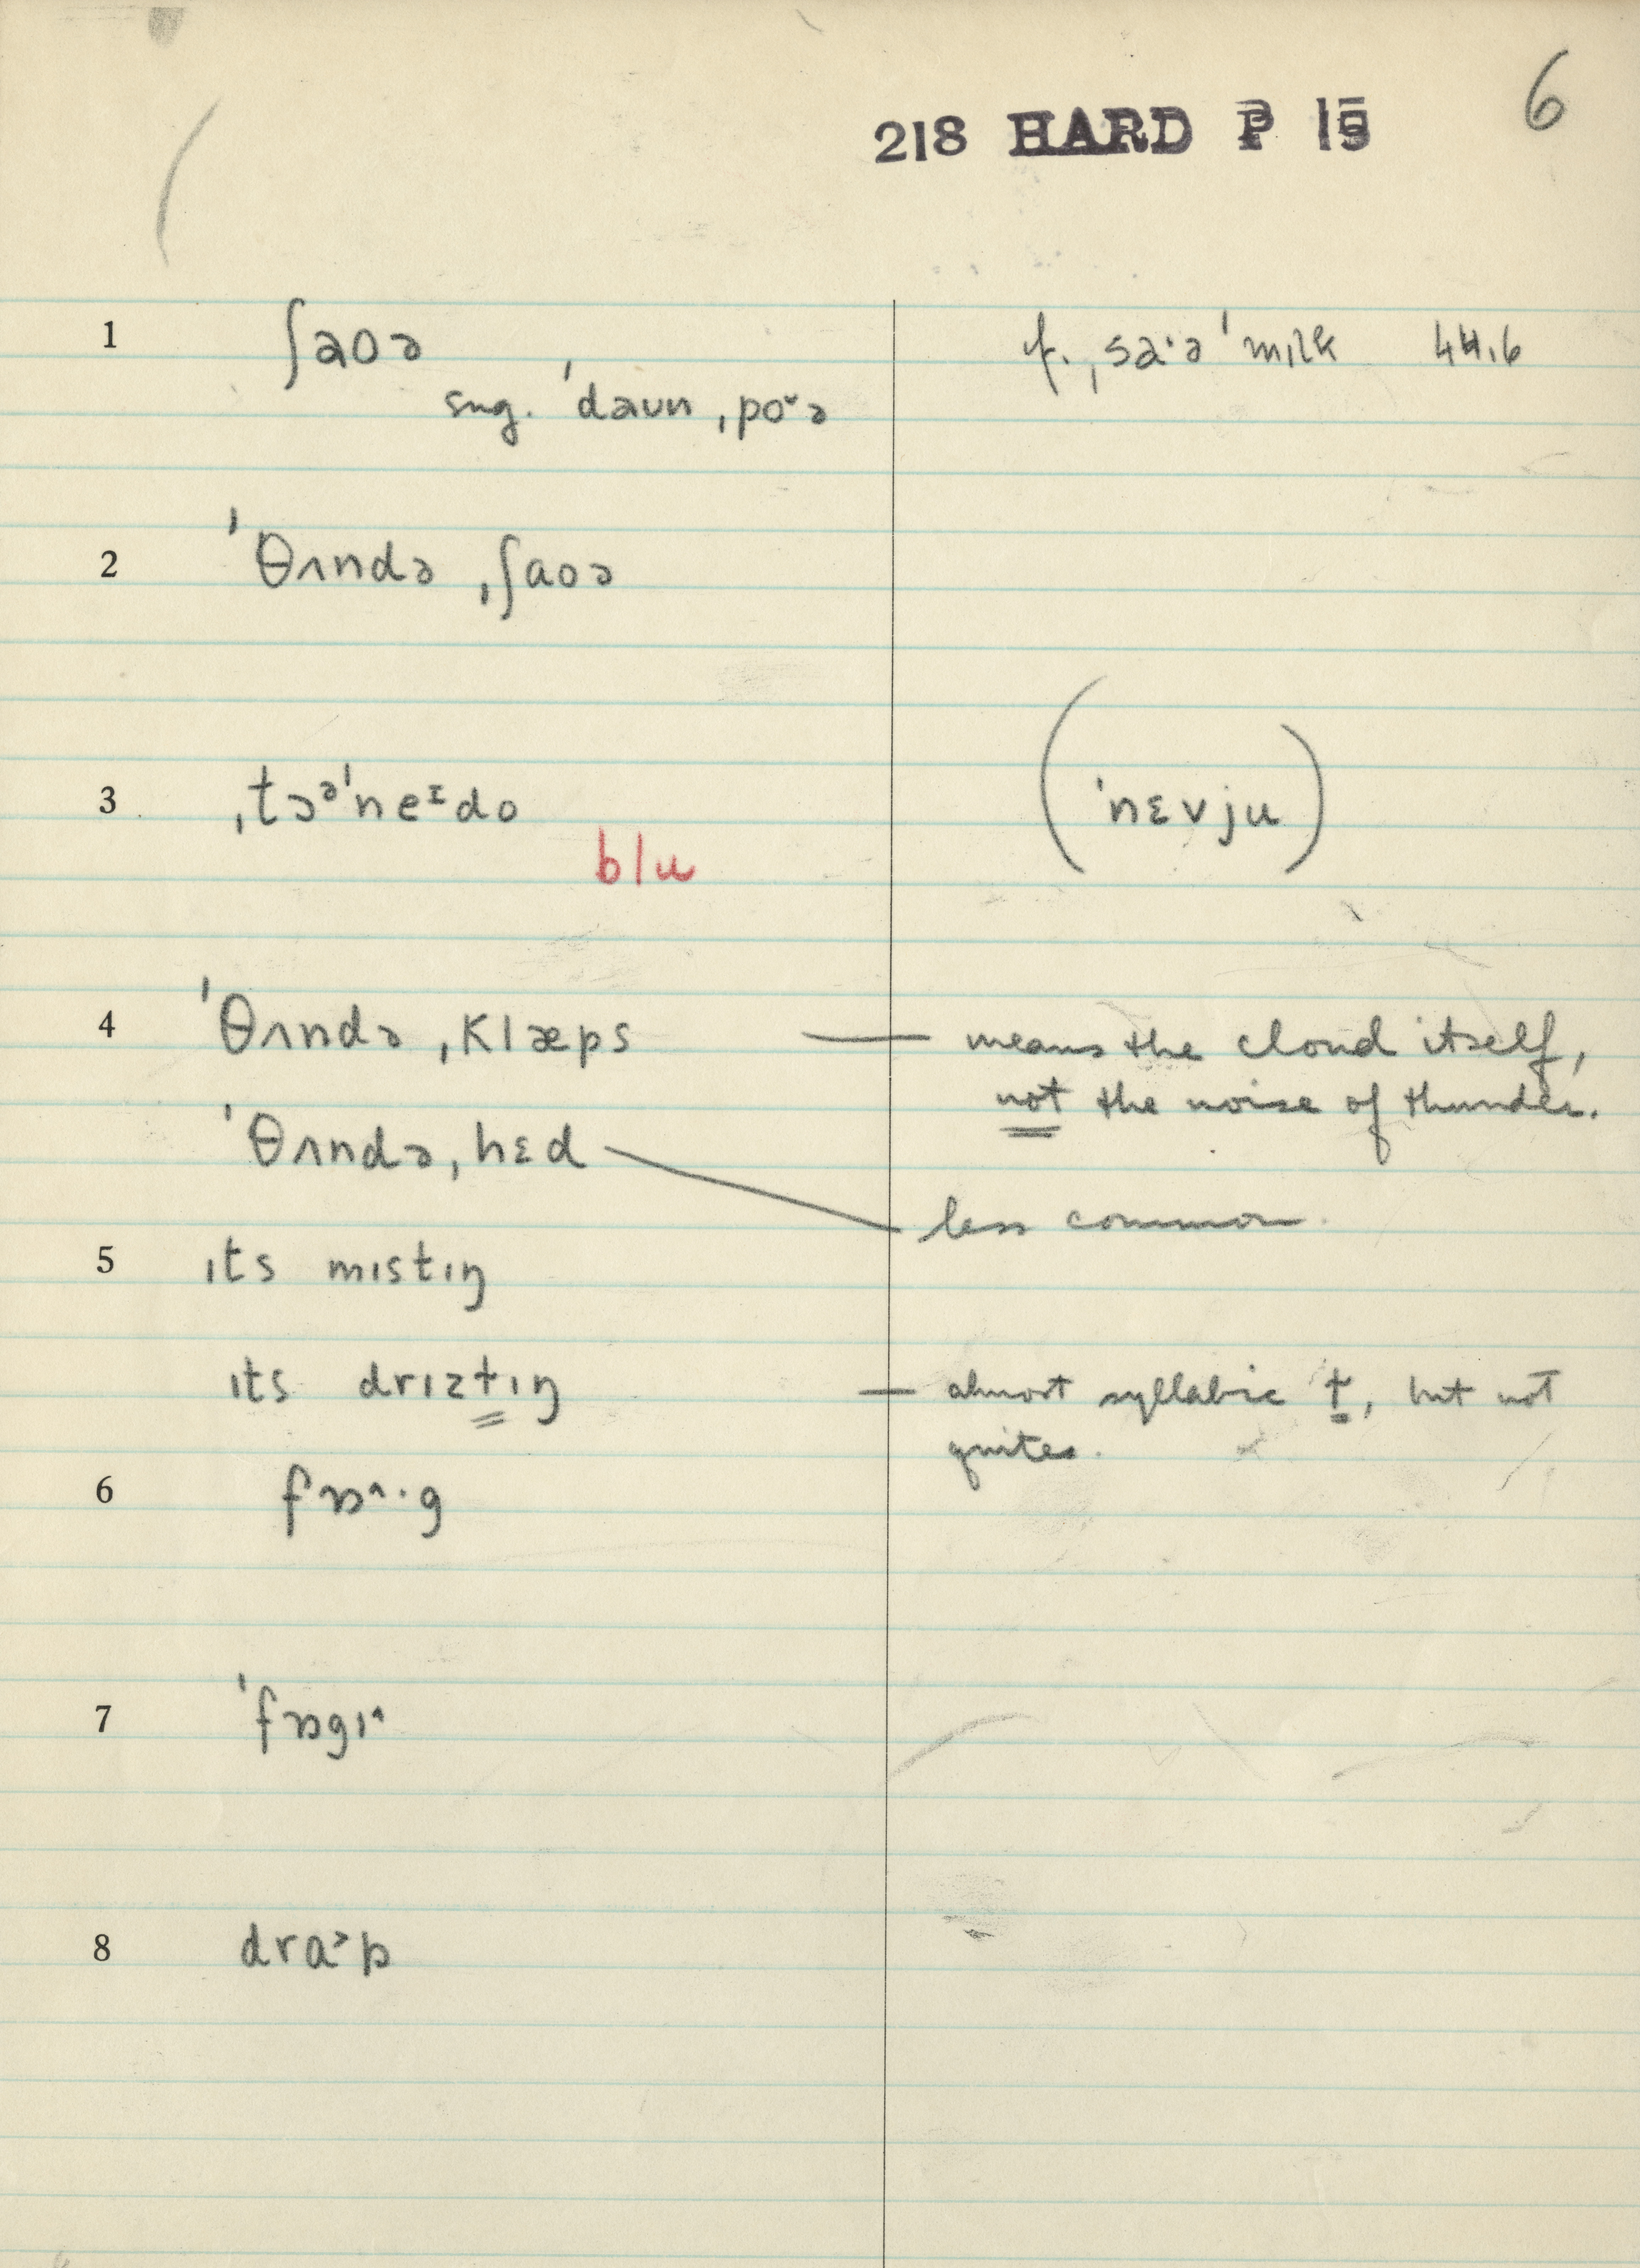 6
218 HARD P 15
1 ʃaoə cf. ˌsa·ə ˈmɪlk 44.6
sug. ˈdaʊn ˌpo˅ə
2 ˈθʌndə ˌʃaoə
3 ˌtɔᵊˈneᶦdo (ˈnɛvju)
blu
4 ˈθʌndə ˌklæps — means the cloud itself,
not the noise of thunder.
ˈθʌndə ˌhɛd — less common.
5 ɪts mɪstɪŋ
ɪts drɪzɫɪŋ — almost syllabic ɫ, but not
quite.
6 fɒ^·g
7 ˈfɒgɪ^
8 dra˃p